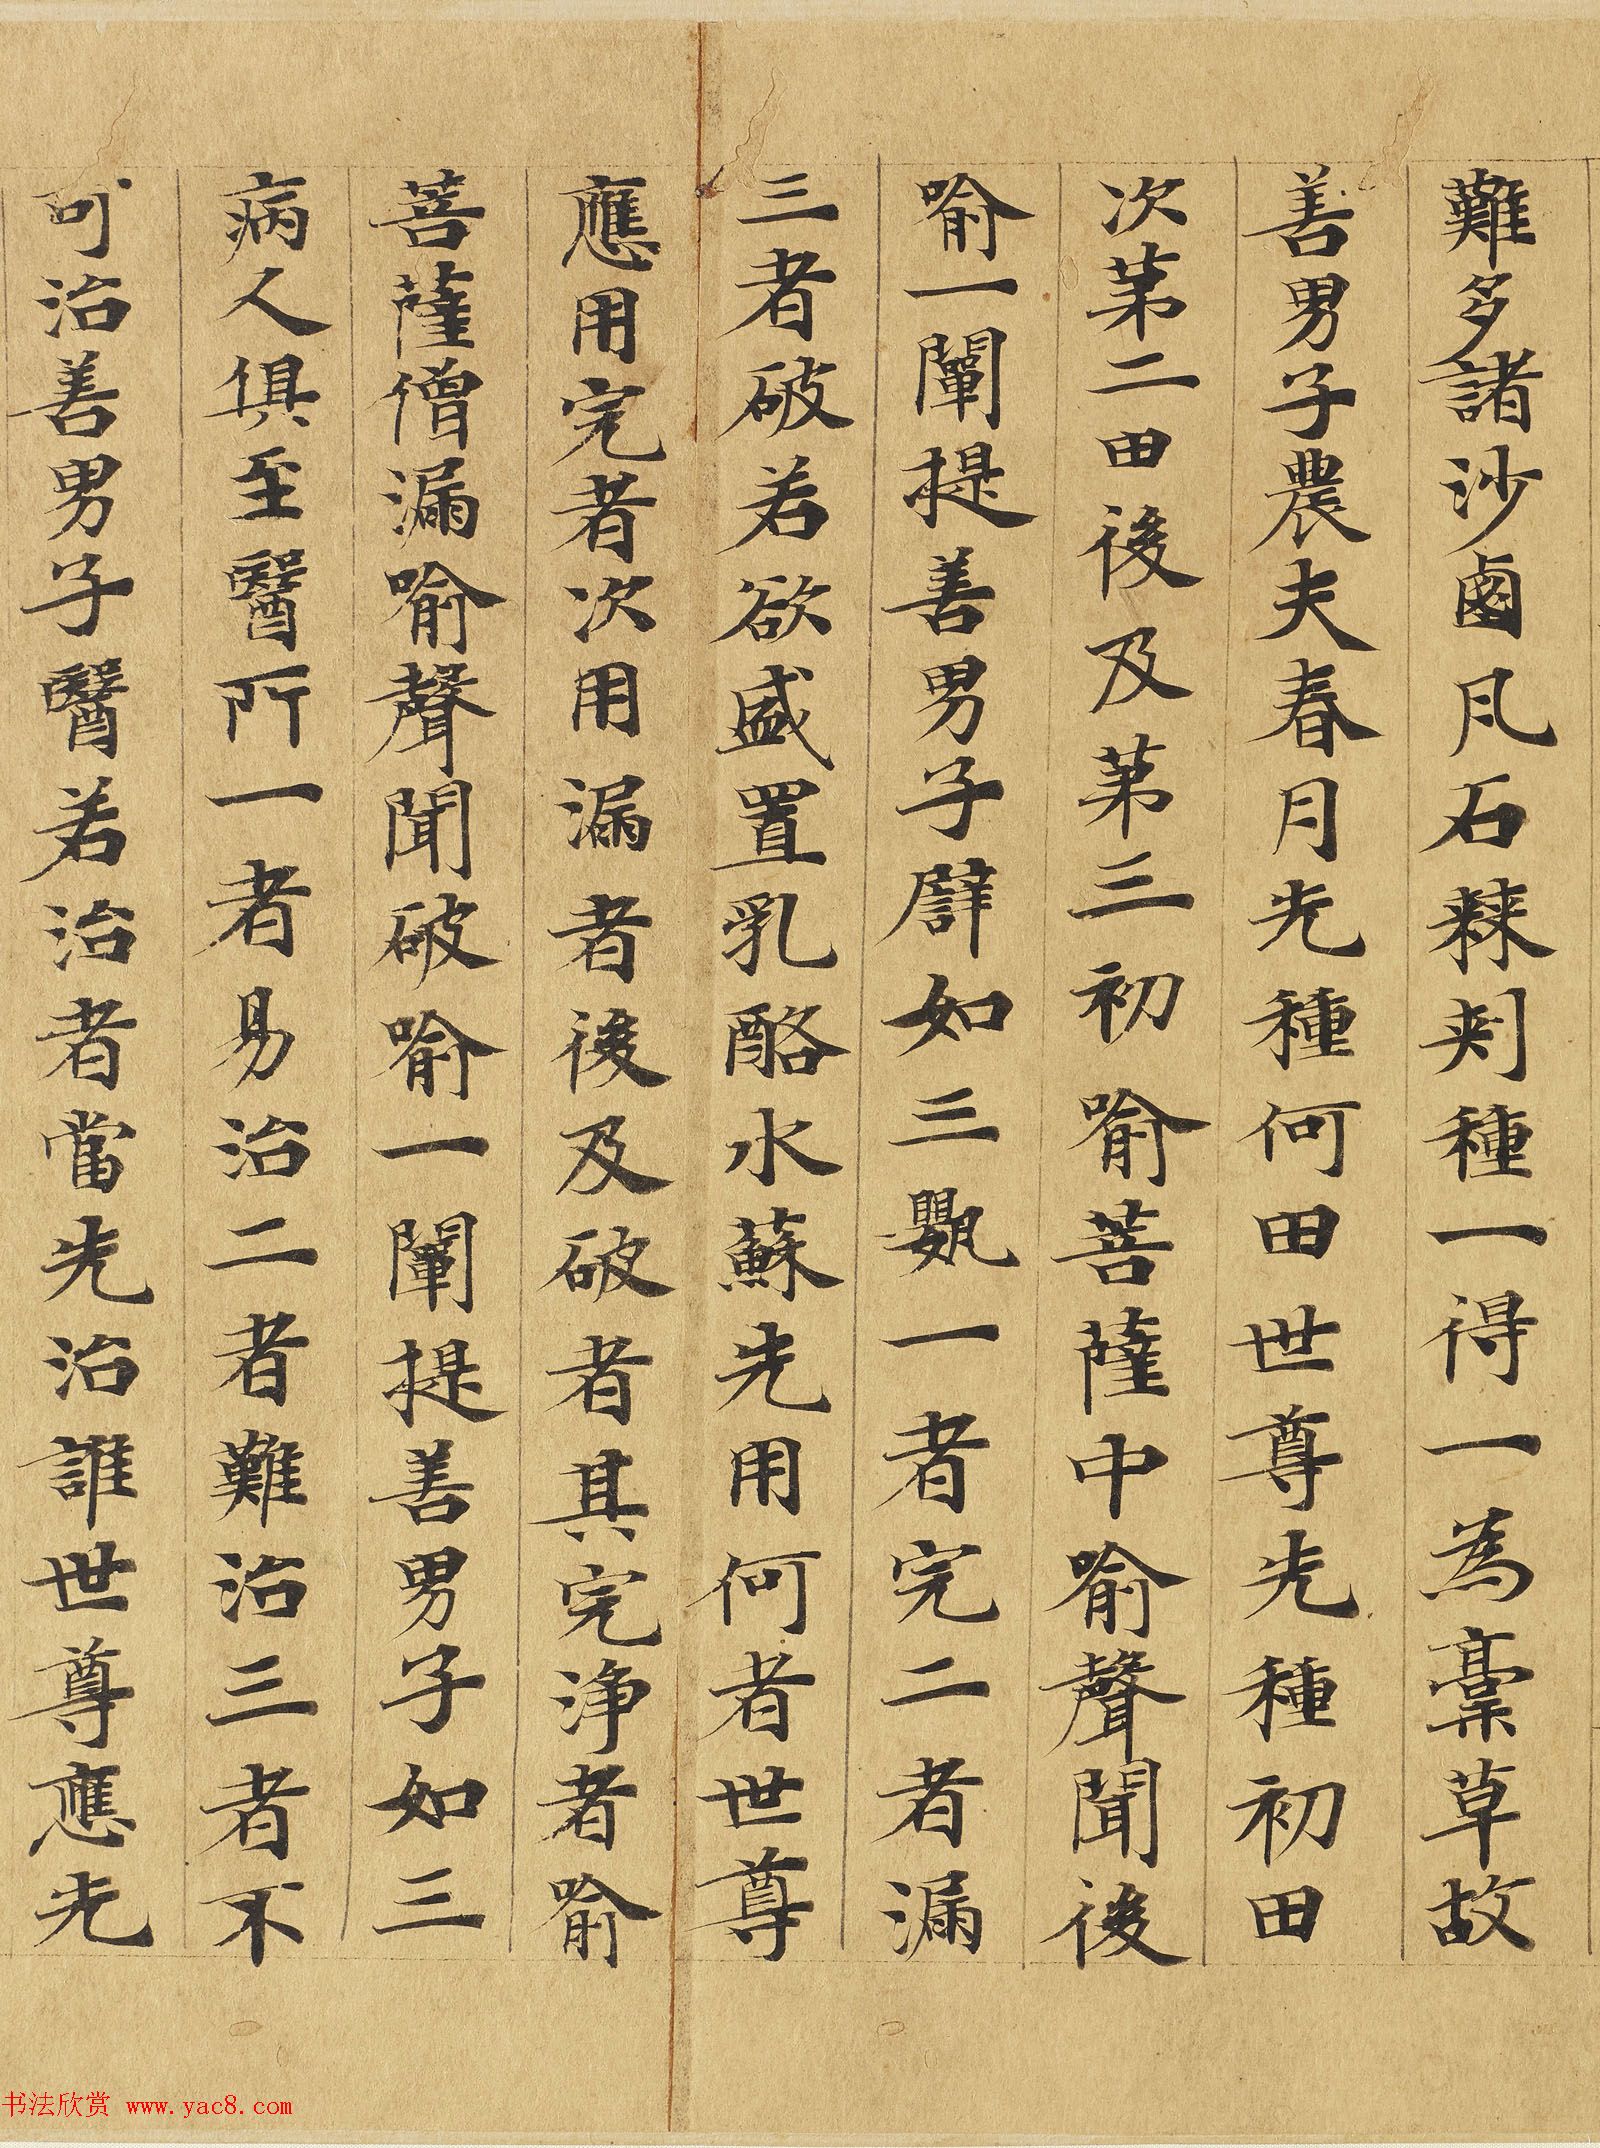 難多諸沙鹵瓦石棘刺種一得一為藁草故
善男子農夫春月先種何田世尊先種初田
次第二田後及第三初喻菩薩中喻聲聞後
喻一闡提善男子譬如三甖一者完二者漏
三者破若欲盛置乳酪水蘇先用何者世尊
應用完者次用漏者後及破者其完淨者喻
菩薩僧漏喻聲聞破喻一闡提善男子如三
病人俱至醫所一者易治二者難治三者不
可治善男子醫若治者當先治誰世尊應先
书法欣赏 www.yac8.com